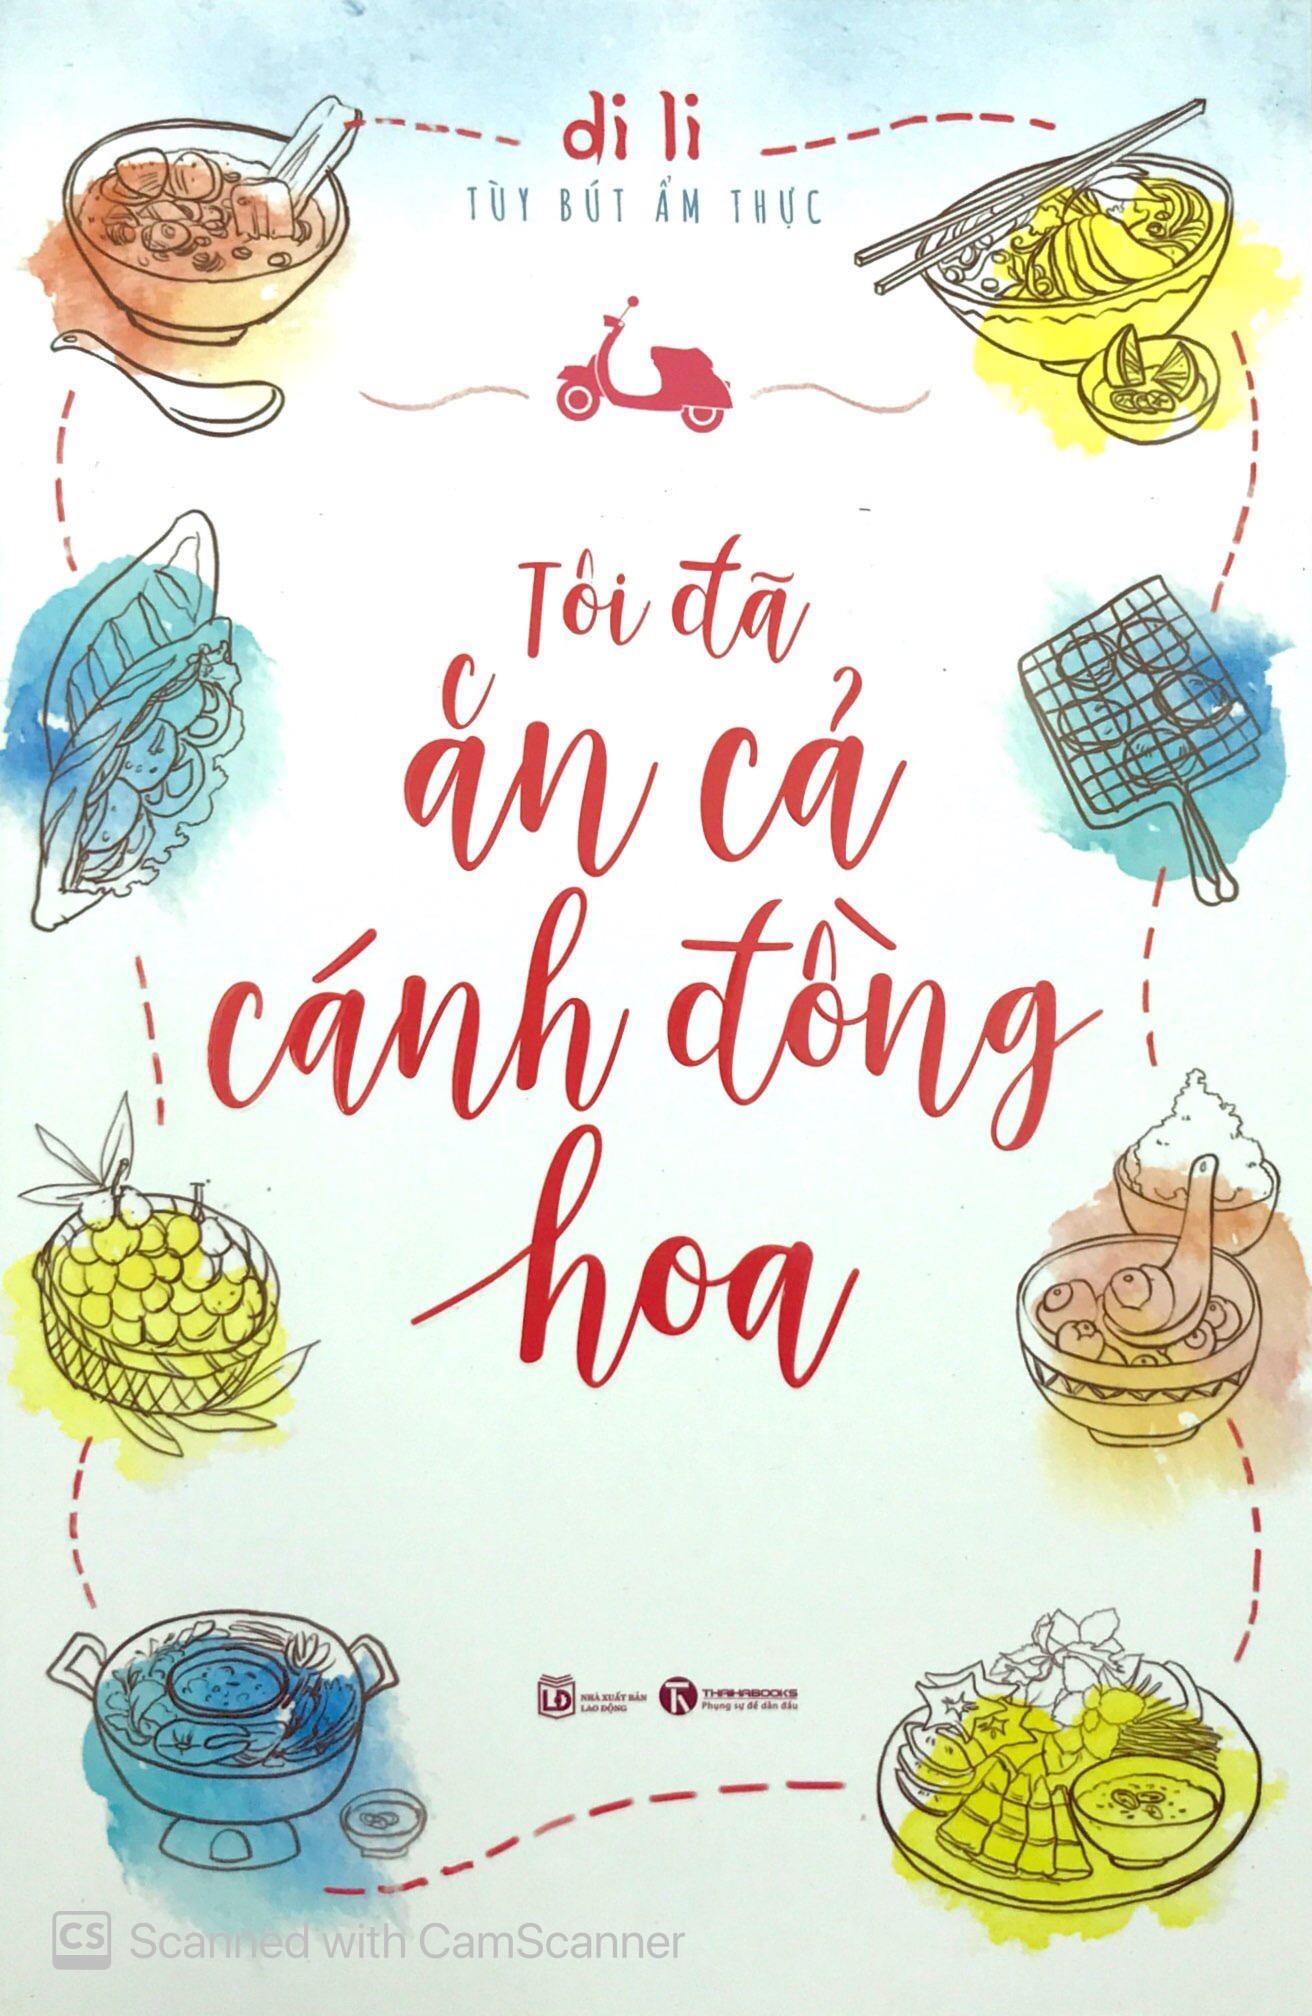 di li
TÙY BÚT ẨM THỰC
Tôi đã
ăn cả
cánh đồng
hoa
LĐ NHÀ XUẤT BẢN
LAO ĐỘNG
THAIHABOOKS
Phụng sự để dẫn đầu
CS Scanned with CamScanner